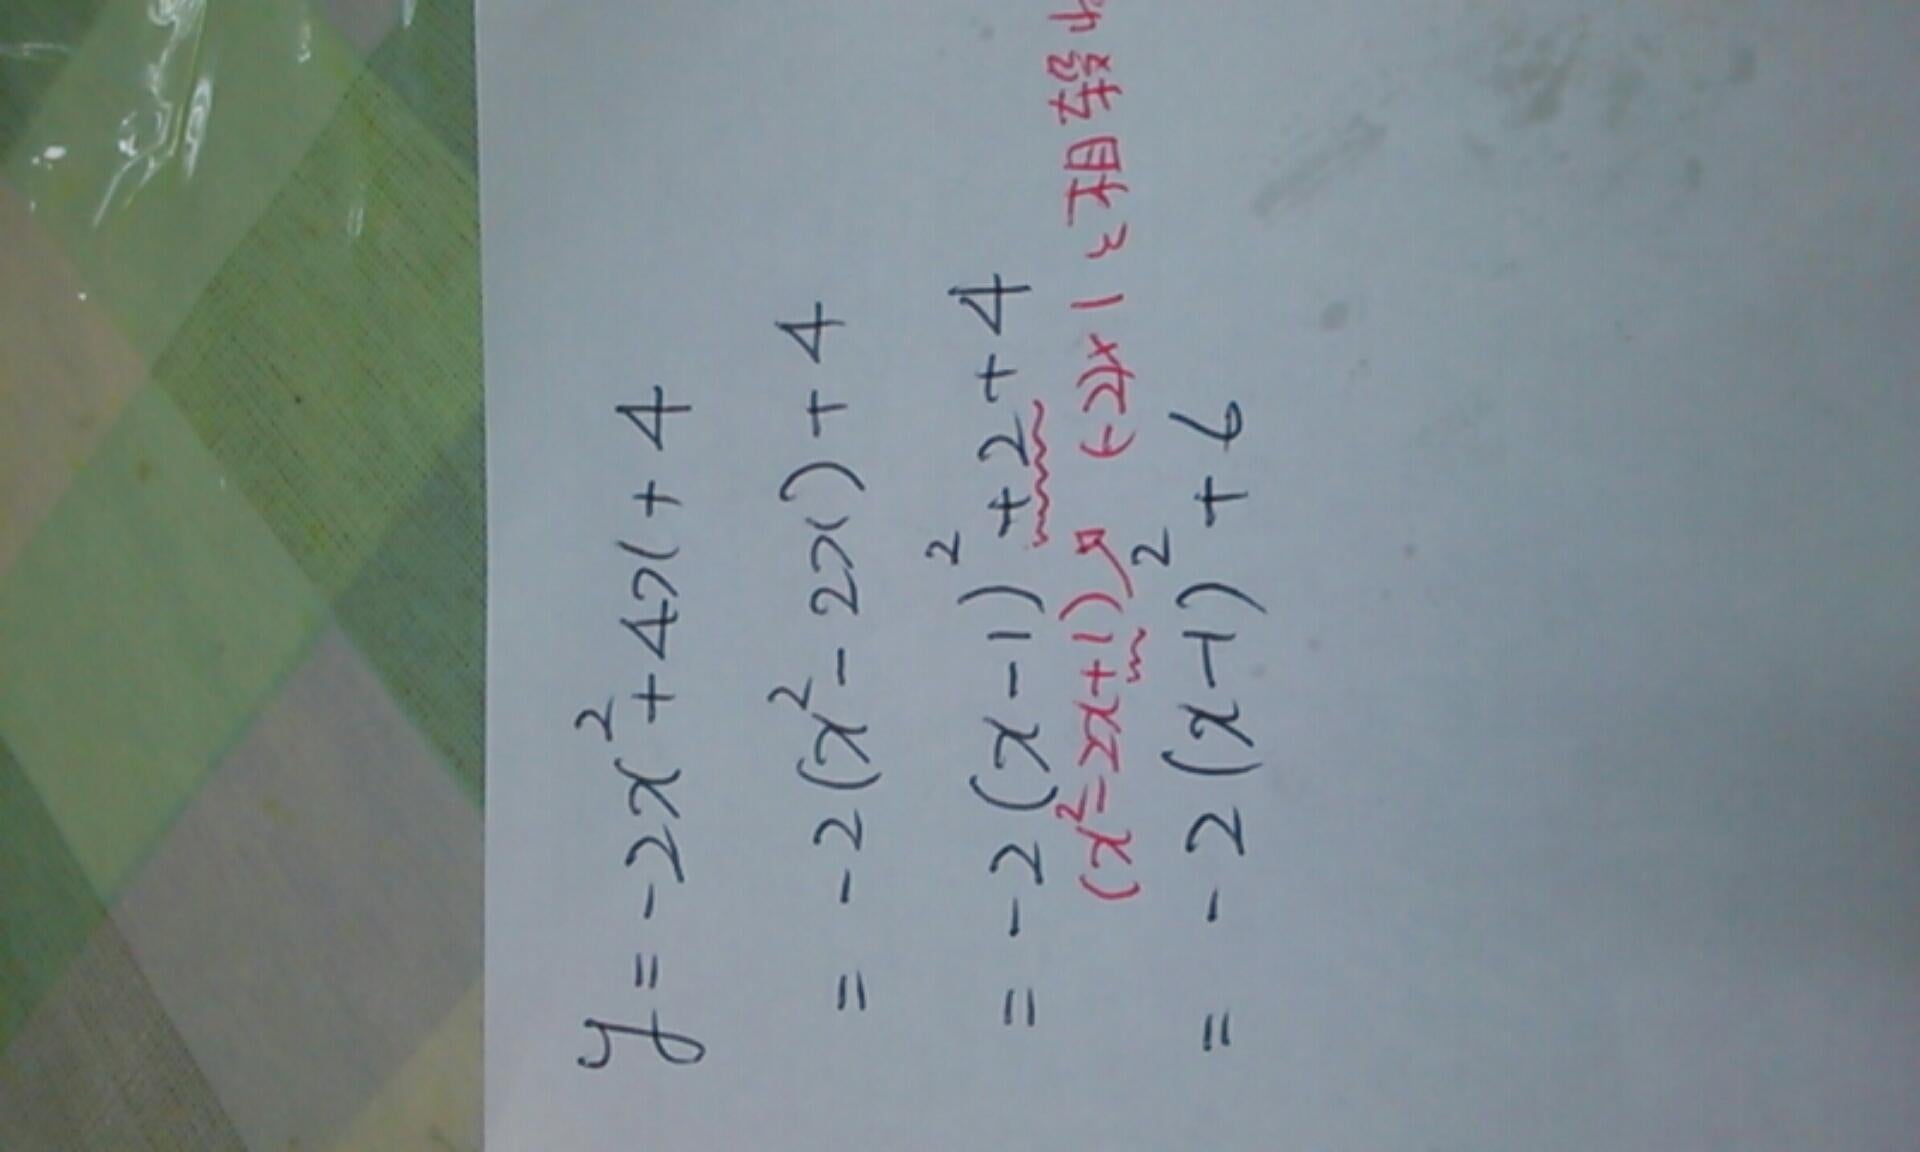 y = -2x² + 4x + 4
= -2(x² - 2x) + 4
= -2(x - 1)² + 2 + 4
(x² - 2x + 1) (-2)×1と相殺
= -2(x - 1)² + 6